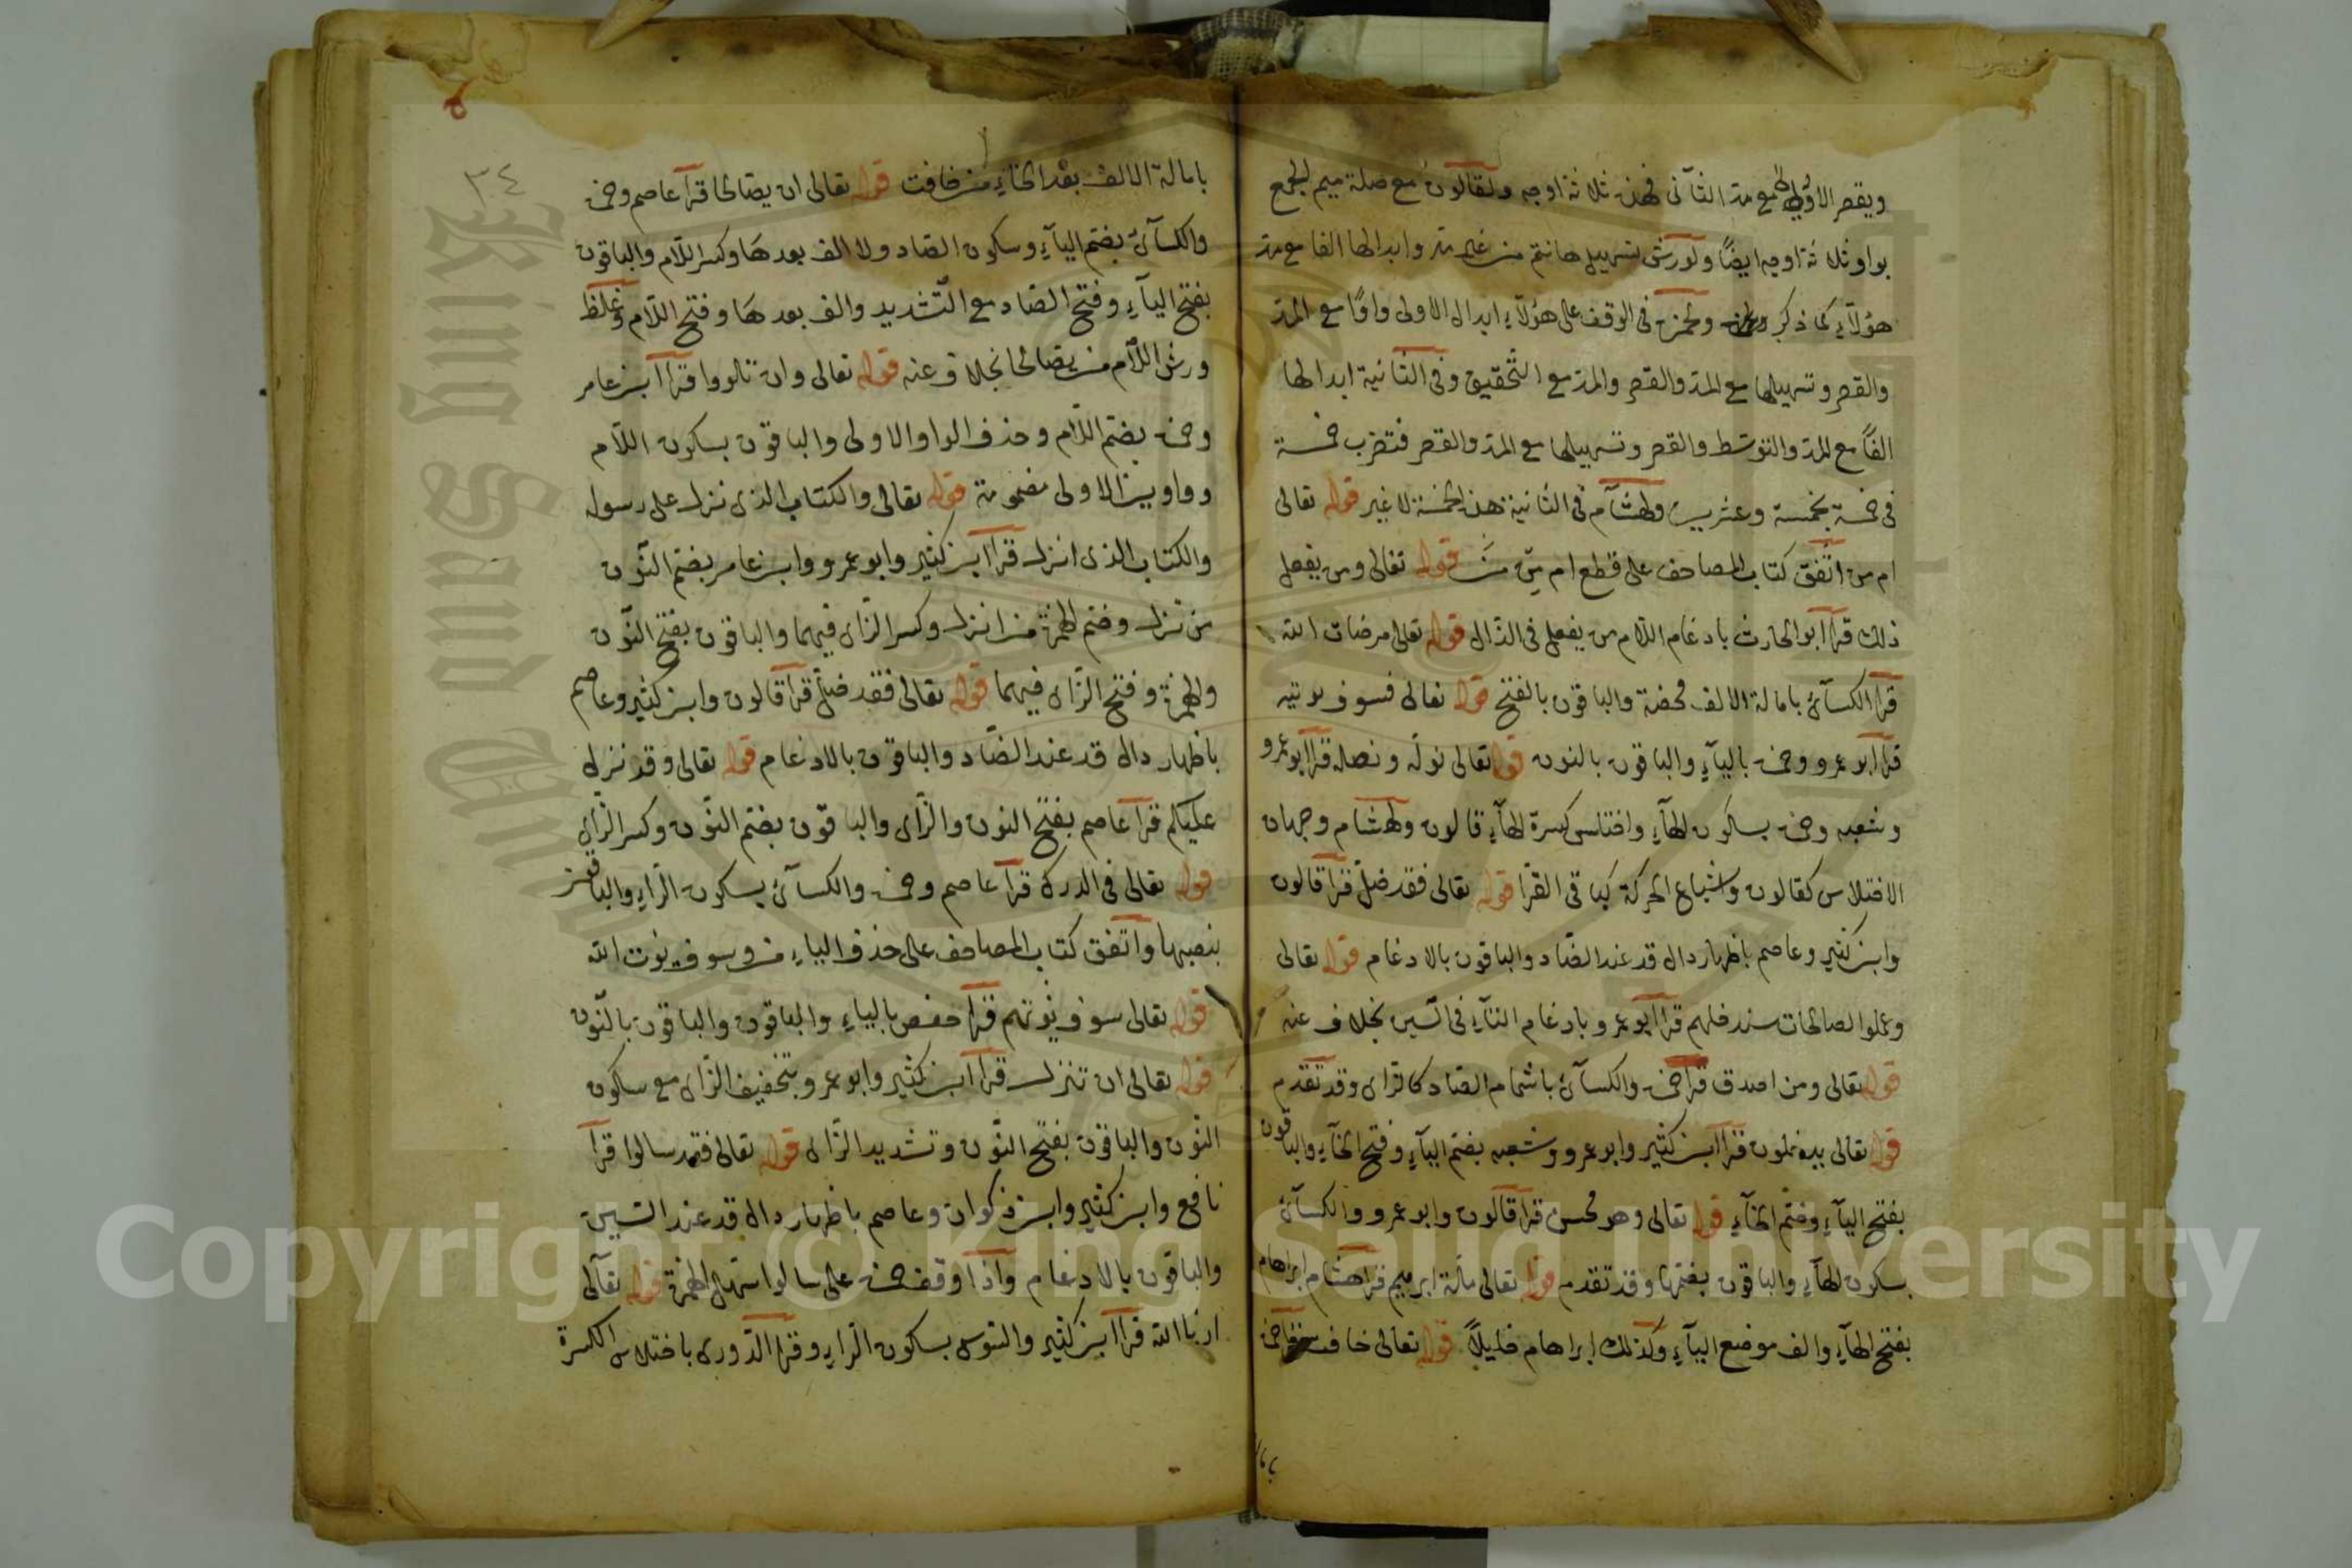 ويقصر الاولى مع مد الثاني فهذه ثلاثة اوجه ولقالون مع صلة ميم الجمع
بواو ثلاثة اوجه ايضًا ولورش تسهيل هانتم من غير مد وابدالها الفا مع مد
هؤلآء كما ذكر ولحمزة في الوقف على هؤلآء ابدال الاولى واوًا مع المد
والقصر وتسهيلها مع المد والقصر والمد مع التحقيق وفي الثانية ابدالها
الفًا مع المد والتوسط والقصر وتسهيلها مع المد والقصر فتضرب خمسة
في خمسة بخمسة وعشرين ولهشام في الثانية هذه الخمسة لا غير قوله تعالى
ام من اتفق كتاب المصاحف على قطع ام من من قوله تعالى ومن يفعل
ذلك قرا ابو الحارث بادغام اللام من يفعل في الذال قوله تعالى مرضات الله
قرا الكسآئي بامالة الالف محضة والباقون بالفتح قوله تعالى فسوف يوتيه
قرا ابو عمرو وحمزة باليآء والباقون بالنون قوله تعالى نوله ونصله قرا ابو عمرو
وشعبه وحمزة بسكون الهآء واختلس كسرة الهآء قالون ولهشام وجهان
الاختلاس كقالون واشباع الحركة كباقي القرا قوله تعالى فقد ضل قرا قالون
وابن كثير وعاصم باظهار دال قد عند الضاد والباقون بالادغام قوله تعالى
وعملوا الصالحات سندخلهم قرا ابو عمرو بادغام التآء في السين بخلاف عنه
قوله تعالى ومن اصدق قرا حمزة والكسآئي باشمام الصاد كالزاى وقد تقدم
قوله تعالى يدخلون قرا ابن كثير وابو عمرو وشعبه بضم اليآء وفتح الخآء والباقون
بفتح اليآء وضم الخآء قوله تعالى وهو محسن قرا قالون وابو عمرو والكسآئي
بسكون الهآء والباقون بضمها وقد تقدم قوله تعالى ملة ابرهيم قرا هشام ابراهام
بفتح الهآء والف موضع اليآء وكذلك ابراهام خليلاً قوله تعالى خافت حمزة
باما
٣٤
بامالة الالف بعد الخاء من خافت قوله تعالى ان يصالحا قرا عاصم وحمزة
والكسآئي بضم اليآء وسكون الصاد ولا الف بعدها وكسر اللام والباقون
بفتح اليآء وفتح الصاد مع التشديد والف بعدها وفتح اللام وغلظ
ورش اللام من يصالحا بخلاف عنه قوله تعالى وان تلووا قرا ابن عامر
وحمزة بضم اللام وحذف الواو الاولى والباقون بسكون اللام
وواوين الاولى مضمومة قوله تعالى والكتاب الذى نزل على رسوله
والكتاب الذى انزل قرا ابن كثير وابو عمرو وابن عامر بضم النون
من نزل وضم الهمزة من انزل وكسر الزاى فيهما والباقون بفتح النون
والهمزة وفتح الزاى فيهما قوله تعالى فقد ضل قرا قالون وابن كثير وعاصم
باظهار دال قد عند الضاد والباقون بالادغام قوله تعالى وقد نزل
عليكم قرا عاصم بفتح النون والزاى والباقون بضم النون وكسر الزاى
قوله تعالى في الدرك قرا عاصم وحمزة والكسآئي بسكون الراء والباقون
بنصبها واتفق كتاب المصاحف على حذف الياء من وسوف يؤت الله
قوله تعالى سوف يؤتهم قرا حفص بالياء والباقون والباقون بالنون
قوله تعالى ان تنزل قرا ابن كثير وابو عمرو بتخفيف الزاى مع سكون
النون والباقون بفتح النون وتشديد الزاى قوله تعالى فقد سالوا قرا
نافع وابن كثير وابن ذكوان وعاصم باظهار دال قد عند السين
والباقون بالادغام واذا وقف حمزة على سالوا سهل الهمزة قوله تعالى
ارنا الله قرا ابن كثير والسوسي بسكون الراء وقرا الدورى باختلاس الكسرة
King Saud University
Copyright © King Saud University